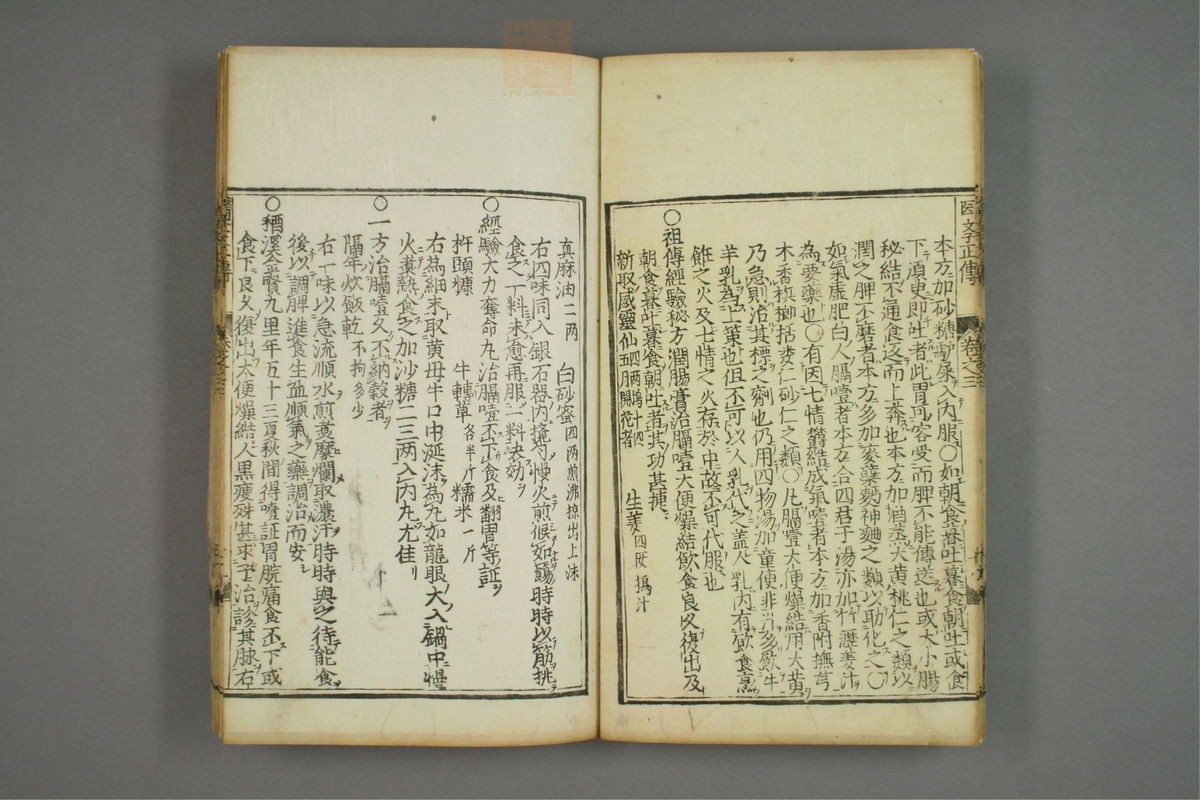 医学正傳
卷之三
本方加砂糖馿尿入内服〇如朝食暮吐暮食朝吐或食
下須臾即吐者此胃可容受而脾不能傳送也或大小腸
秘結不通食返而上奔也本方加酒蒸大黄桃仁之類以
潤之脾不磨者本方多加麥蘗麯神麯之類以助化之〇
如氣虚肥白人膈噎者本方合四君子湯亦加竹瀝姜汁
為要藥也〇有因七情鬱結成氣噎者本方加香附撫芎
木香梹榔括蔞仁砂仁之類〇凡膈噎大便燥結用大黄
乃急則治其標之劑也仍用四物湯加童便韭汁多飲牛
羊乳為上策也但不可以人乳代之盖人乳内有飲食烹
飪之火及七情之火存於中故不可代服也
〇祖傳經驗秘方潤腸膏治膈噎大便燥結飲食良久復出及
朝食暮吐暮食朝吐者其功甚捷
新取威靈仙四両搗汁四五月開花者 生姜四両搗汁
真麻油二両 白砂蜜四両煎沸掠出上沫
右四味同入銀石器内攪匀慢火煎候如餳時時以筯挑
食之一料未愈再服一料决効
〇經驗大力奪命丸治膈噎不下食及翻胃等証
杵頭糠 牛轉草各半斤 糯米一斤
右為細末取黄母牛口中涎沫為丸如龍眼大入鍋中慢
火煮熟食之加沙糖二三両入内丸尤佳
〇一方治膈噎久不納穀者
隔年炊飯乾不拘多少
右一味以急流順水煎煑糜爛取濃汁時時與之待能食
後以調脾進食生血順氣之藥調治而安
〇稠溪金賢九里年五十三夏秋間得噎証胃脘痛食不下或
食下良久復出大便燥結人黒瘦殊甚求予治診其脉右